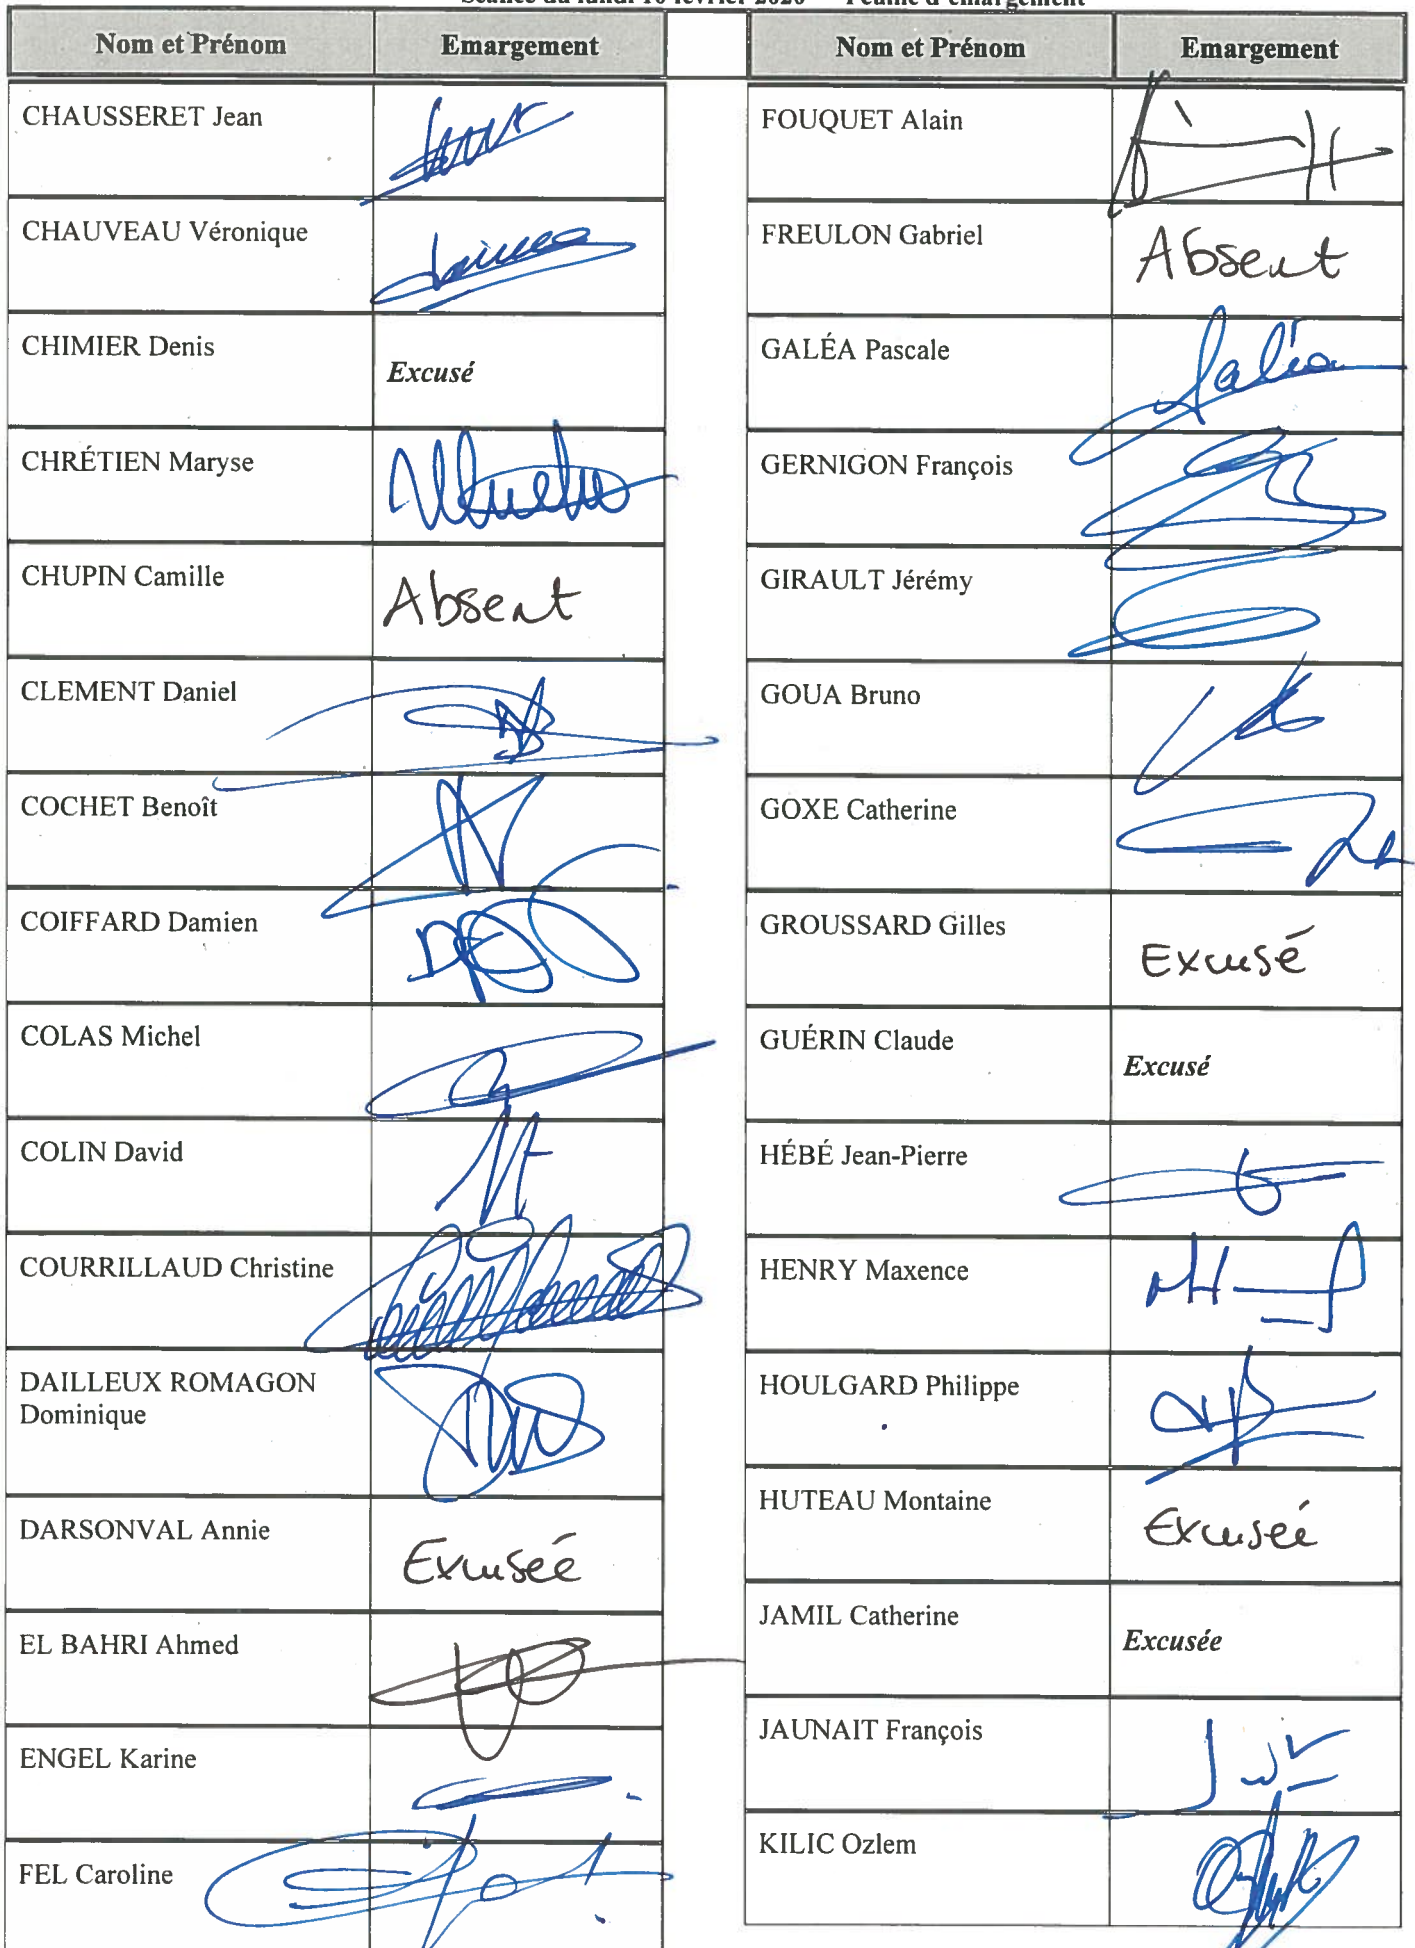 Nom et Prénom Emargement
CHAUSSERET Jean
CHAUVEAU Véronique
CHIMIER Denis Excusé
CHRÉTIEN Maryse
CHUPIN Camille Absent
CLEMENT Daniel
COCHET Benoît
COIFFARD Damien
COLAS Michel
COLIN David
COURRILLAUD Christine
DAILLEUX ROMAGON
Dominique
DARSONVAL Annie Excusée
EL BAHRI Ahmed
ENGEL Karine
FEL Caroline
Nom et Prénom Emargement
FOUQUET Alain
FREULON Gabriel Absent
GALÉA Pascale Galéa
GERNIGON François
GIRAULT Jérémy
GOUA Bruno
GOXE Catherine
GROUSSARD Gilles Excusé
GUÉRIN Claude Excusé
HÉBÉ Jean-Pierre
HENRY Maxence
HOULGARD Philippe
HUTEAU Montaine Excusée
JAMIL Catherine Excusée
JAUNAIT François
KILIC Ozlem